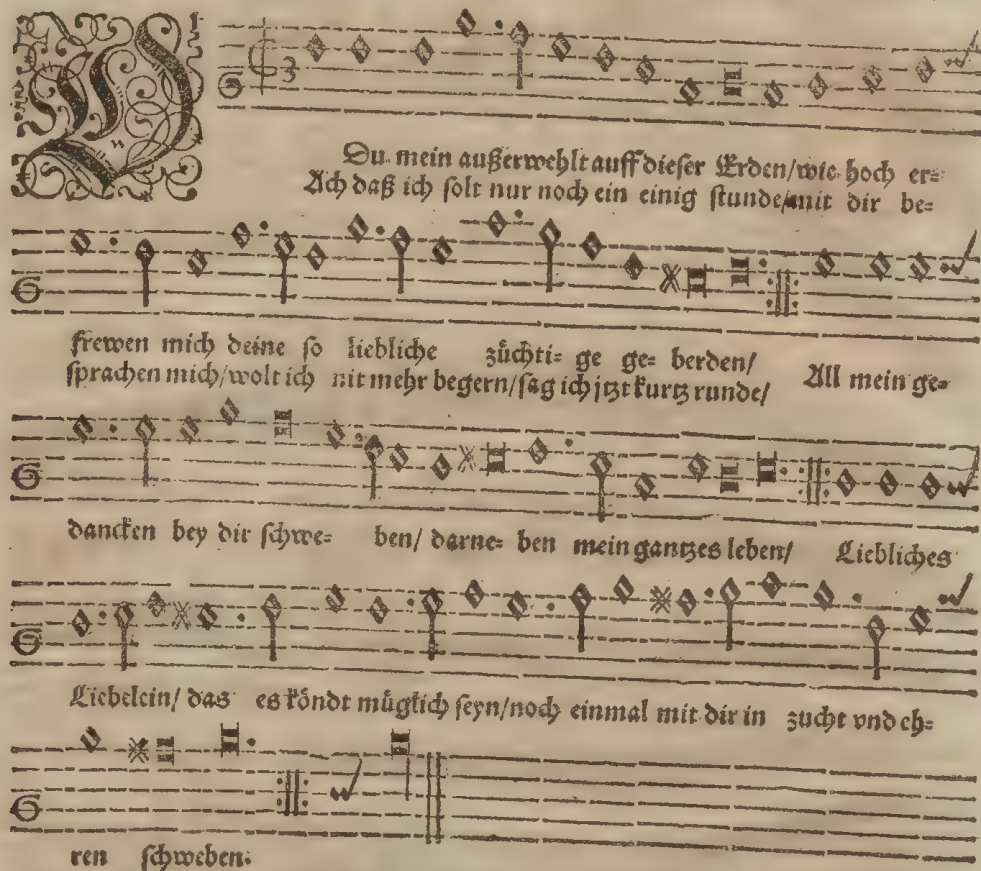 Du mein außerwehlt auff dieser Erden/wie hoch er=
Ach daß ich solt nur noch ein einig stunde/mit dir be=
frewen mich deine so liebliche züchti= ge ge= berden/ All mein ge=
sprachen mich/wolt ich nit mehr begern/sag ich jtzt kurtz runde/
dancken bey dir schwe= ben/ darne= ben mein gantzes leben/ Liebliches
Liebelein/ das es köndt müglich seyn/noch einmal mit dir in zucht vnd eh=
ren schweben: